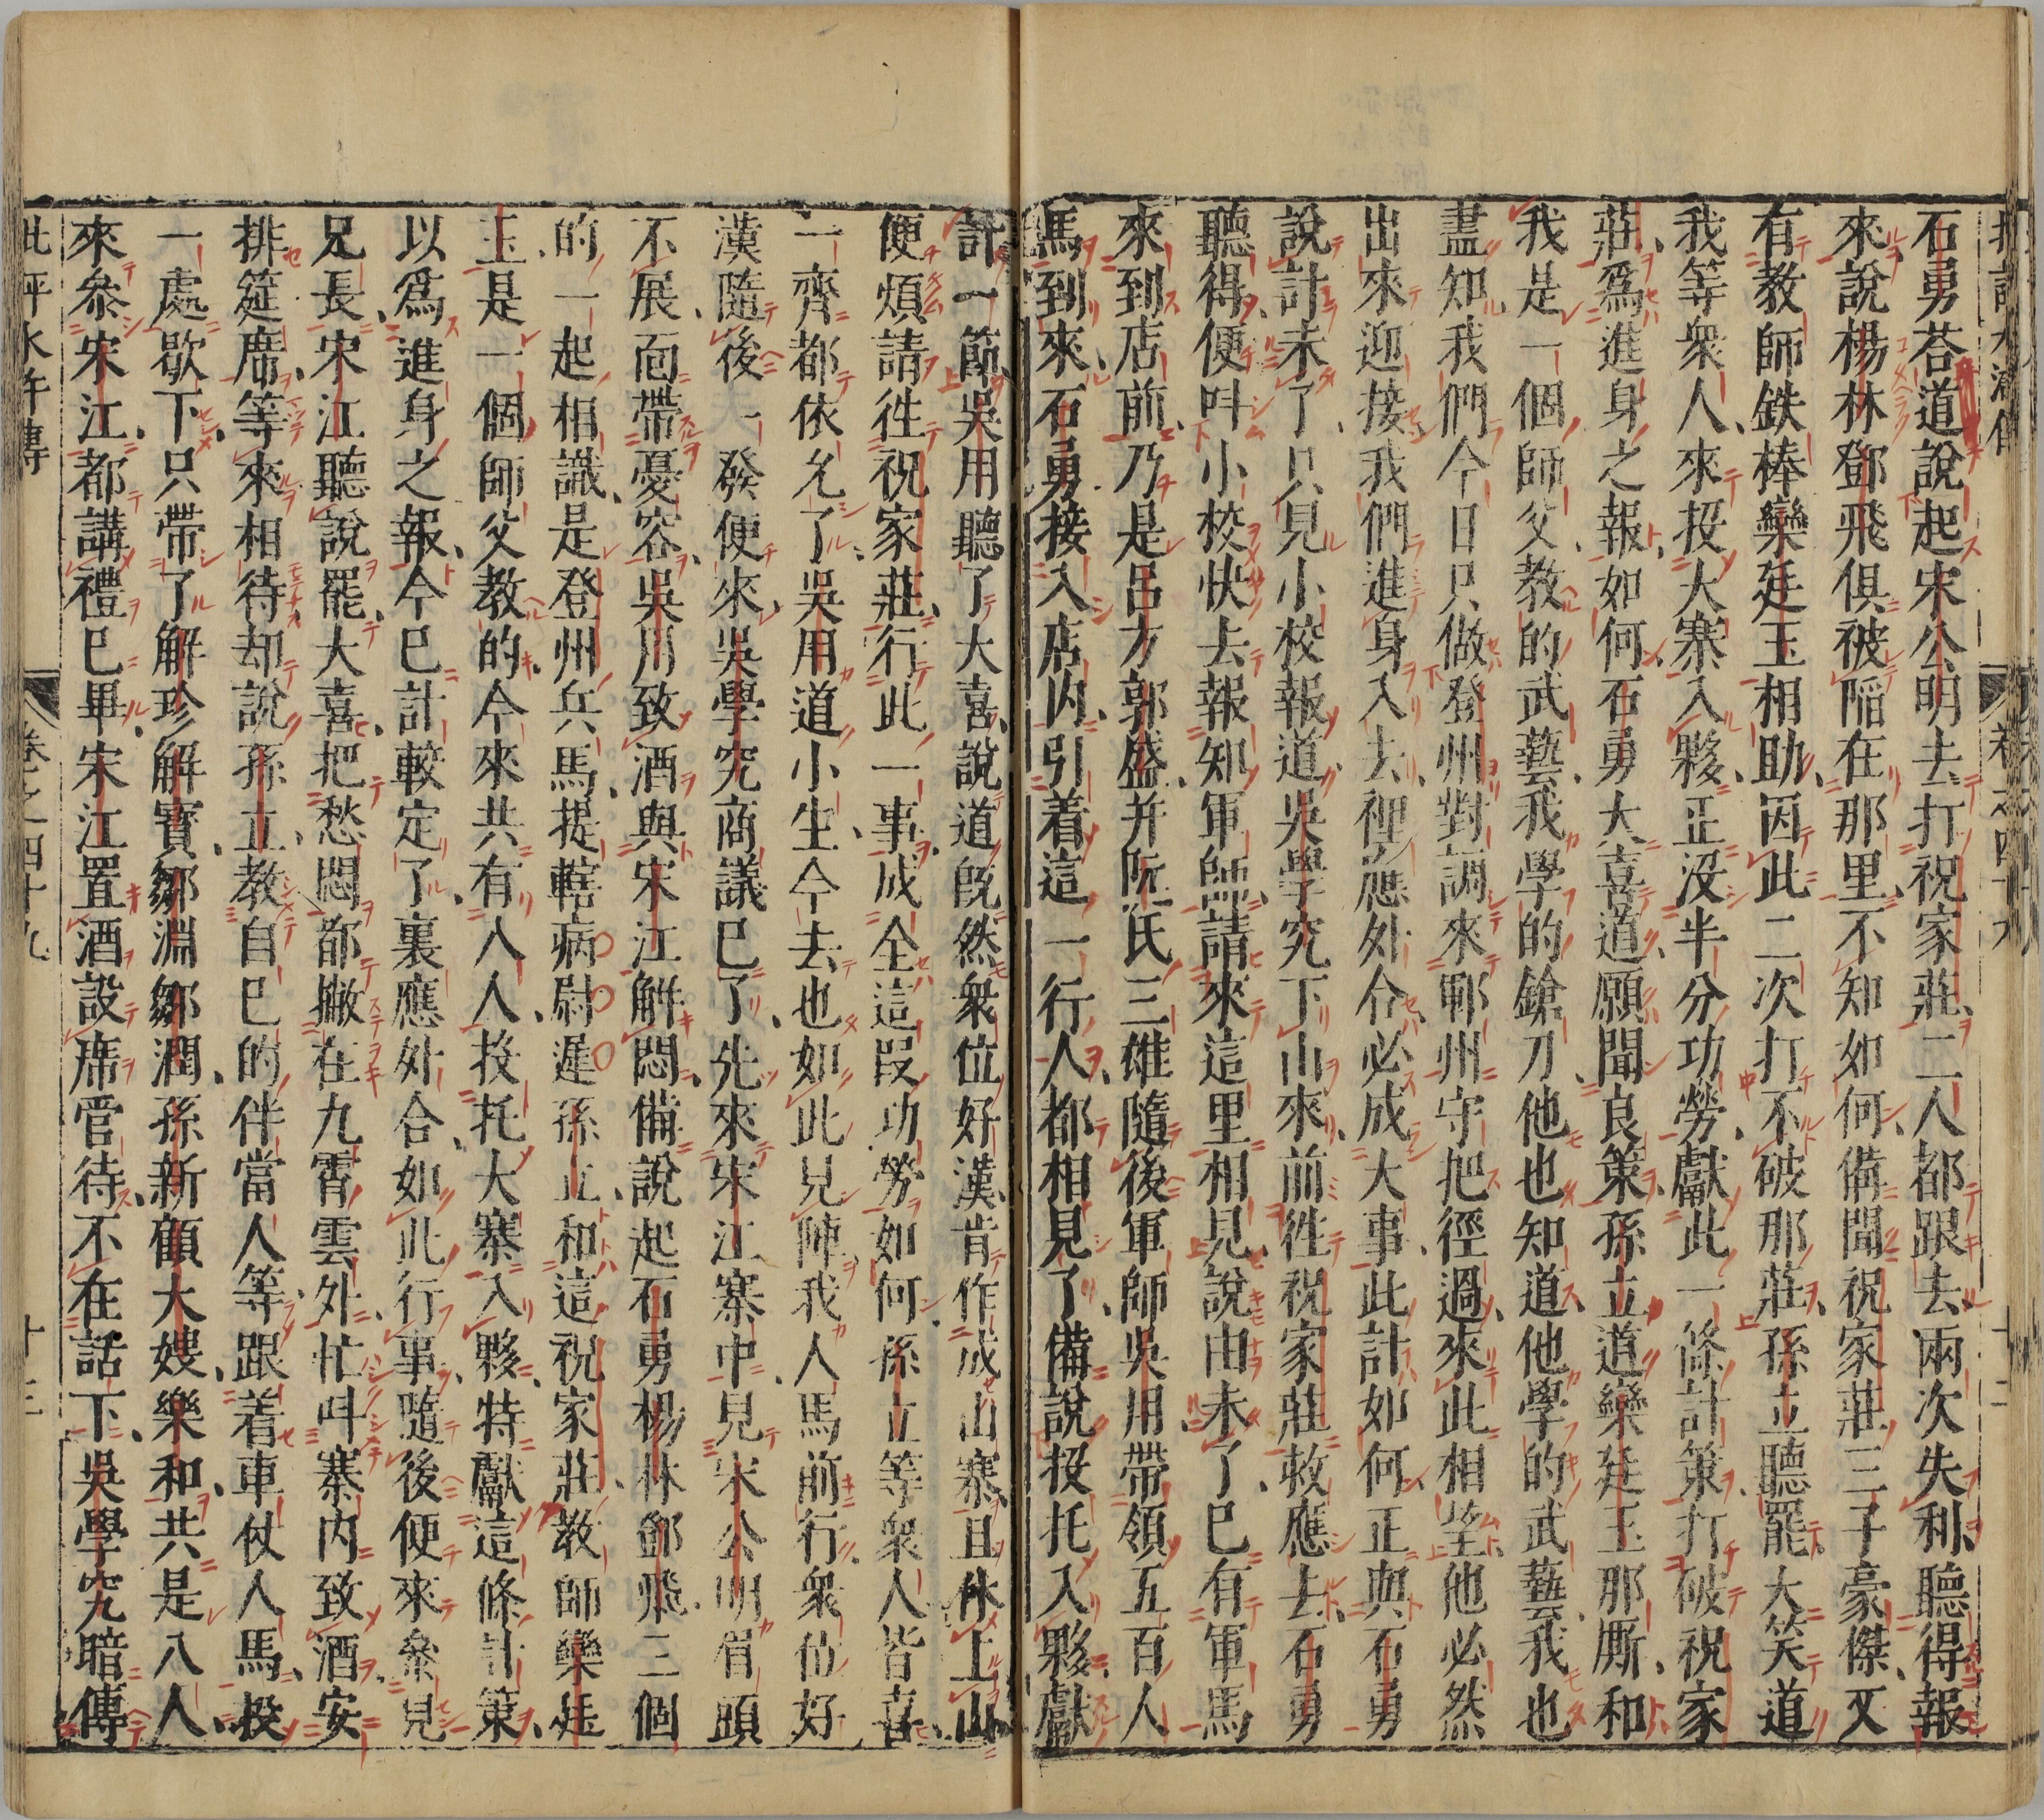 石勇荅道說起宋公明去打祝家莊二人都跟去兩次失利聽得報
來說楊林鄧飛俱被陷在那里不知如何備聞祝家莊三子豪傑又
有教師鉄棒欒廷玉相助因此二次打不破那莊孫立聽罷大笑道
我等衆人來投大寨入夥正没半分功勞獻此一條計策打破祝家
莊爲進身之報如何石勇大喜道願聞良策孫立道欒廷玉那厮和
我是一個師父教的武藝我學的鎗刀他也知道他學的武藝我也
盡知我們今日只做登州對調來鄆州守把徑過來此相望他必然
出來迎接我們進身入去裡應外合必成大事此計如何正與石勇
說計未了只見小校報道吳學究下山來前徃祝家莊救應去石勇
聽得便呌小校快去報知軍師請來這里相見說由未了已有軍馬
來到店前乃是呂方郭盛并阮氏三雄隨後軍師吳用帶領五百人
馬到來石勇接入店内引着這一行人都相見了備說投托入夥獻
計一節吳用聽了大喜說道旣然衆位好漢肯作成山寨且休上山
便煩請徃祝家莊行此一事成全這叚功勞如何孫立等衆人皆喜
一齊都依允了吳用道小生今去也如此見陣我人馬前行衆位好
漢隨後一發便來吳學究商議已了先來宋江寨中見宋公明眉頭
不展面帶憂容吳用致酒與宋江解悶備說起石勇楊林鄧飛三個
的一起相識是登州兵馬提轄病尉遲孫立和這祝家莊教師欒廷
玉是一個師父教的今來共有八人投托大寨入夥特獻這條計策
以爲進身之報今已計較定了裏應外合如此行事隨後便來叅見
兄長宋江聽說罷大喜把愁悶都撇在九霄雲外忙呌寨内致酒安
排筵席等來相待却說孫立教自已的伴當人等跟着車仗人馬投
一處歇下只帶了解珍解寶鄒淵鄒潤孫新顧大嫂樂和共是八人
來叅宋江都講禮已畢宋江置酒設席管待不在話下吳學究暗傳
卷之四十九